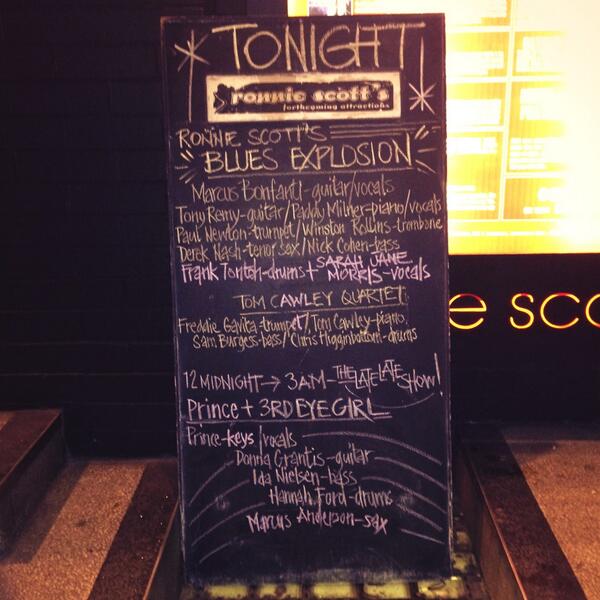 TONIGHT!
ronnie scott's
forthcoming attractions
RONNIE SCOTT'S
BLUES EXPLOSION
Marcus Bonfanti-guitar/vocals
Tony Remy-guitar/Paddy Milner-piano/vocals
Paul Newton-trumpet/Winston Rollins-trombone
Derek Nash-tenor sax/Nick Cohen-bass
Frank Tontoh-drums + SARAH JANE MORRIS-vocals
TOM CAWLEY QUARTET
Freddie Gavita-trumpet/Tom Cawley-piano
Sam Burgess-bass/Chris Higginbottom-drums
12 MIDNIGHT → 3AM - THE LATE LATE SHOW!
Prince + 3RDEYEGIRL
Prince-keys/vocals
Donna Grantis-guitar
Ida Nielsen-bass
Hannah Ford-drums
Marcus Anderson-sax
e sco